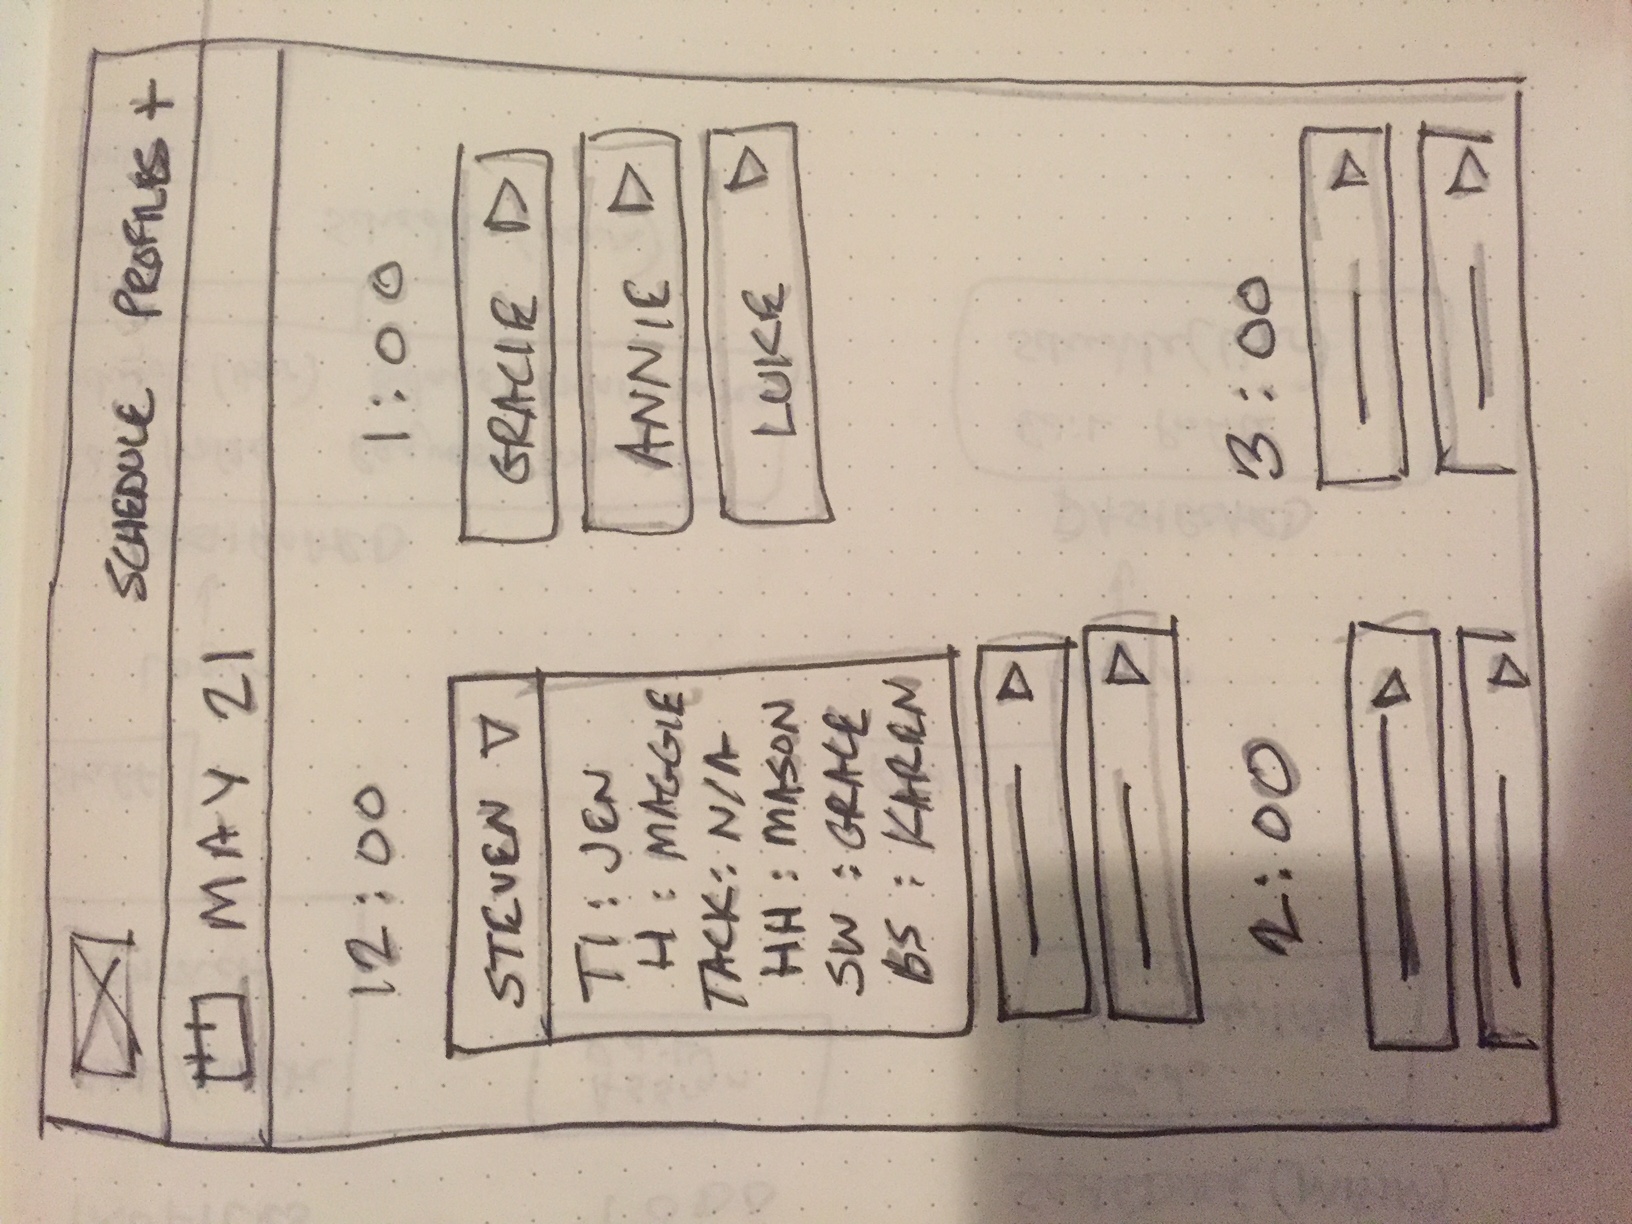 SCHEDULE PROFILES +
MAY 21
12:00
STEVEN
TI : JEN
H : MAGGIE
TACK: N/A
HH : MASON
SW : GRACE
BS : KAREN
1:00
GRACIE
ANNIE
LUKE
2:00
3:00